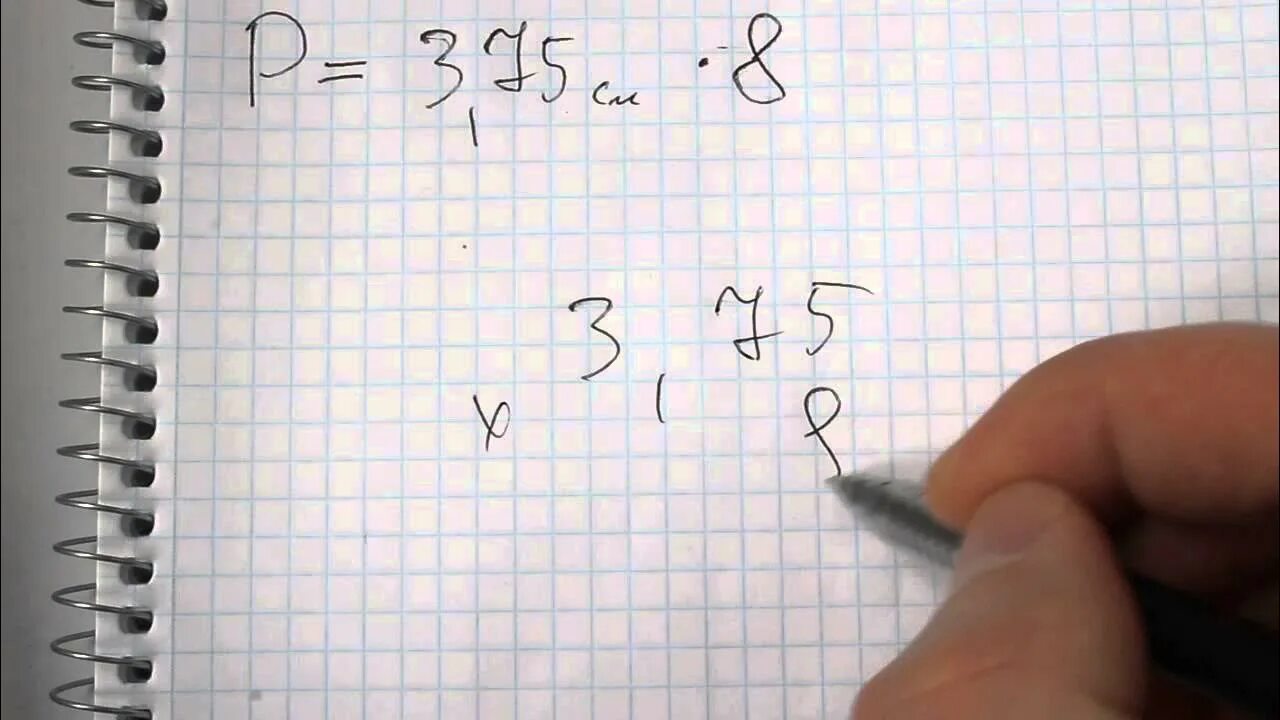 P = 3,75 см · 8
3,75
x 8